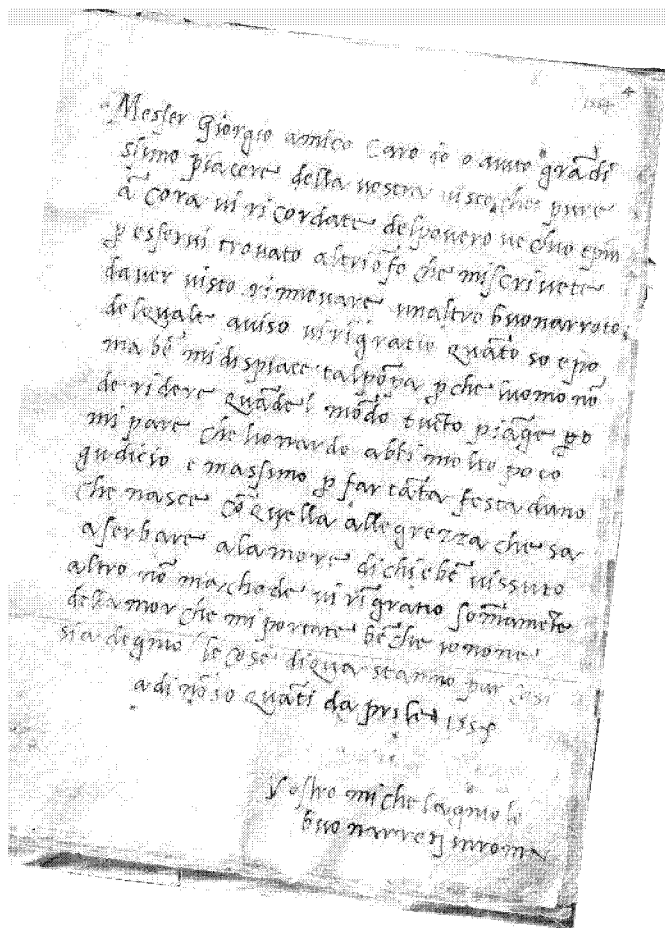 1554
4
Messer giorgio amico caro io o auto grā di
simo piacere della vostra visto che pure
ā cora vi ricordate del povero vechio e piu
p̱ esservi trovato al triōfo che mi scrivete
d aver visto rinnovare un altro buonarroto
del quale aviso vi rigratio quāto so e po
ma bē mi dispiace tal pōpa p̱ che l uomo nō
de ridere quāde l mōdo tucto piāge p̱o
mi pare che lionardo abbi molto poco
gudicio e massimo p̱ far tāta festa d uno
che nasce cō quella allegrezza che s a
a serbare a la morte di chi e bē vissuto
altro nō m achade vi rīgratio sommamēte
dell amor che mi portate bē che io no ne
sia degnio le cose di qua stanno pur cosi
a di nō so quāti d aprile 155
Vostro michelagniolo
buonarroti in roma